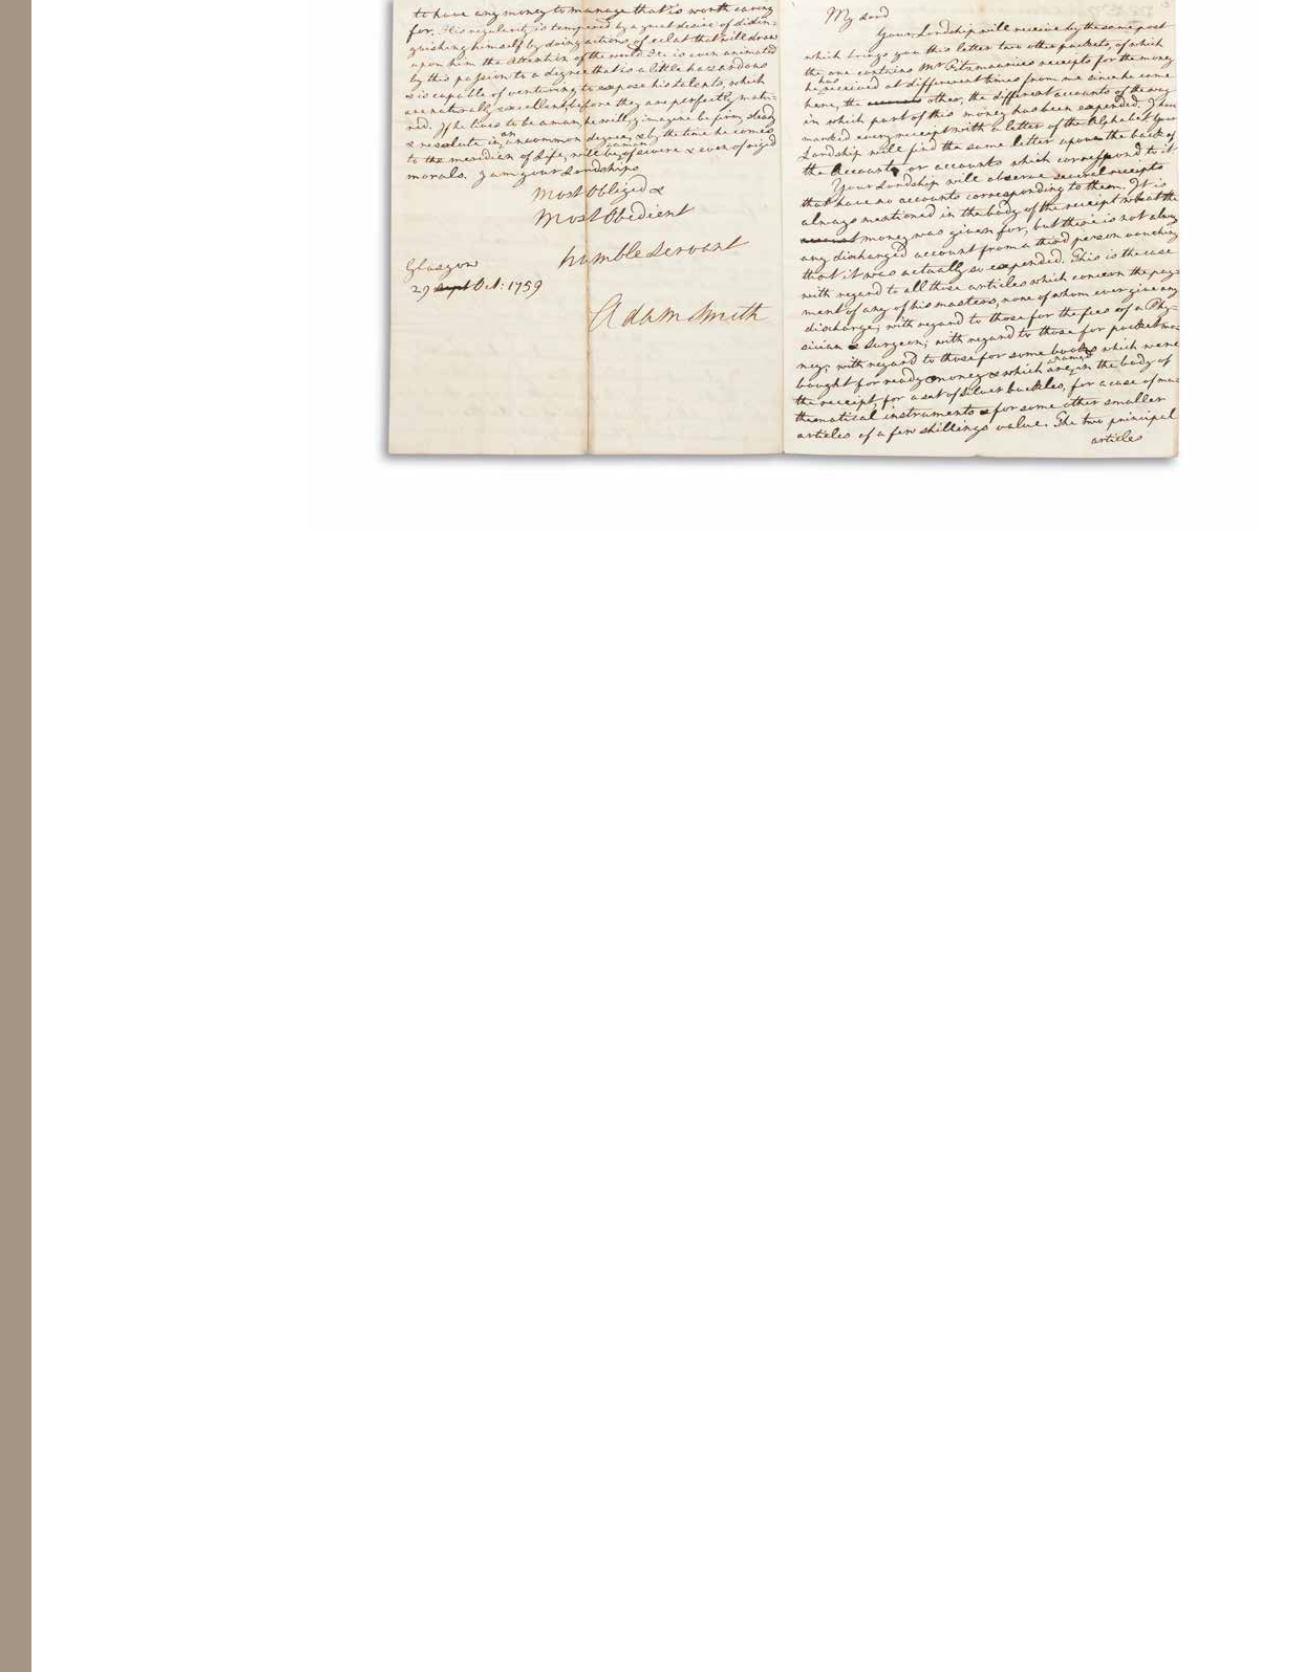 to have any money to manage that is worth caring
for. His regularity is tempered by a great desire of distin=
guishing himself by doing actions of eclat that will draw
upon him the attention of the world. He is even animated
by this passion to a degree that is a little hazardous
& is capable of venturing to expose his talents, which
are naturally excellent, before they are perfectly matu=
red. If he lives to be a man, he will, I imagine be firm, steady
& resolute in an uncommon degree, & by the time he comes
to the meridian of Life, will be a man of severe & even of rigid
morals. I am your Lordships
Most Obliged &
Most Obedient
humble Servant
Glasgow
29 Sept Oct: 1759
Adam Smith
My Lord
Your Lordship will receive by the same post
which brings you this letter two other packets, of which
the one contains Mr Fitzmaurices receipts for the money
he has received at different times from me since he came
here, the other, the different accounts of the way
in which part of this money has been expended. I have
marked every receipt with a letter of the Alphabet Your
Lordship will find the same letter upon the back of
the Account, or accounts which correspond to it
Your Lordship will observe several receipts
that have no accounts corresponding to them. It is
always mentioned in the body of the receipt what the
money was given for, but there is not always
any discharged account from a third person vouching
that it was actually so expended. This is the case
with regard to all those articles which concern the pay=
ment of any of his masters, none of whom ever give any
discharge; with regard to those for the fees of a Phy=
sician & Surgeon; with regard to those for pocket mo=
ney; with regard to those for some books which were
bought for ready money & which are named in the body of
the receipt, for a set of silver buckles, for a case of ma=
thematical instruments & for some other smaller
articles of a few shillings value. The two principal
articles